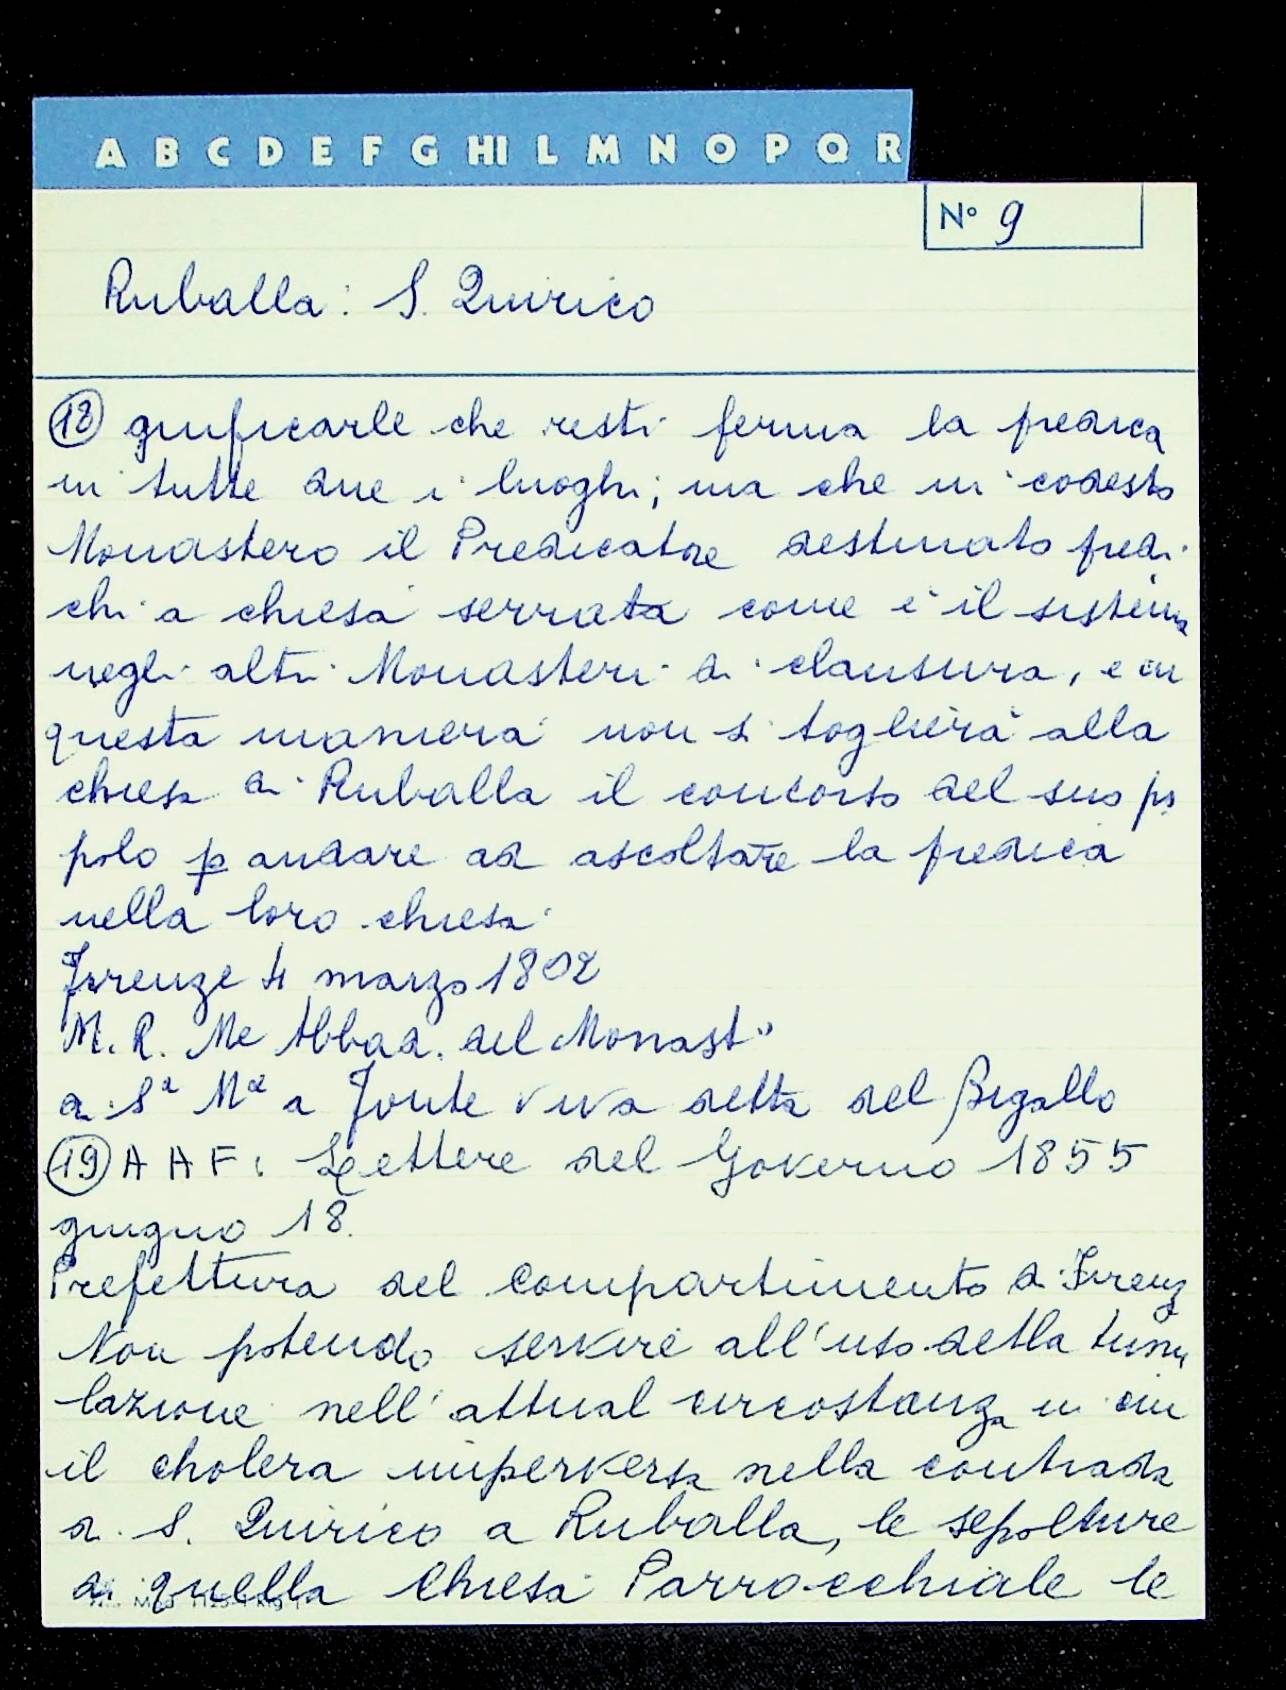 A B C D E F G HI L M N O P Q R
N° 9
Ruballa: S. Quirico
18 gnificarle che resti ferma la predica
in tutte due i luoghi; ma che in codesto
Monastero il Predicatore destinato predi
chi a chiesa serrata come è il sistema
negli altri Monasteri di clausura, e in
questa maniera non si toglierà alla
chiesa di Ruballa il concorso del suo po
polo p andare ad ascoltare la predica
nella loro chiesa
Firenze 4 marzo 1802
M. R. Me Abbad. del Monast°
di Sa Ma a Fonte viva detta del Bigallo
19 A A F: Lettere del Governo 1855
giugno 18.
Prefettura del Compartimento di Firenz
Non potendo servire all'uso della tumu
lazione nell'attual circostanza in cui
il cholera imperversa nella contrada
di S. Quirico a Ruballa, le sepolture
di quella Chiesa Parrocchiale le